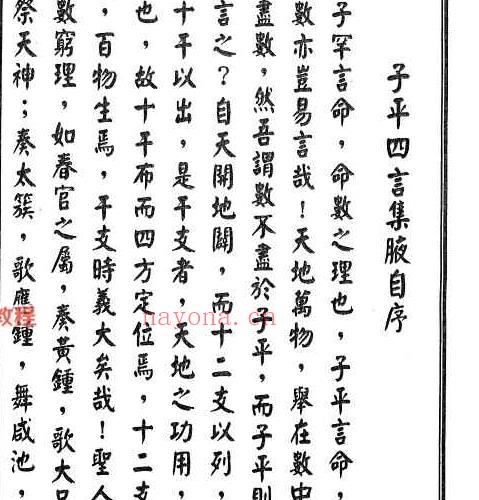 子平四言集腋自序
子罕言命，命數之理也，子平言命，
數亦豈易言哉！天地萬物，舉在數中
盡數，然吾謂數不盡於子平，而子平則
言之？自天開地闢，而十二支以列，
十干以出，是干支者，天地之功用，
也，故十干布而四方定位焉，十二支
，百物生焉，干支時義大矣哉！聖人
數窮理，如春官之屬，奏黃鍾，歌大
祭天神；奏太簇，歌應鍾，舞咸池，
教程
nayona.cn